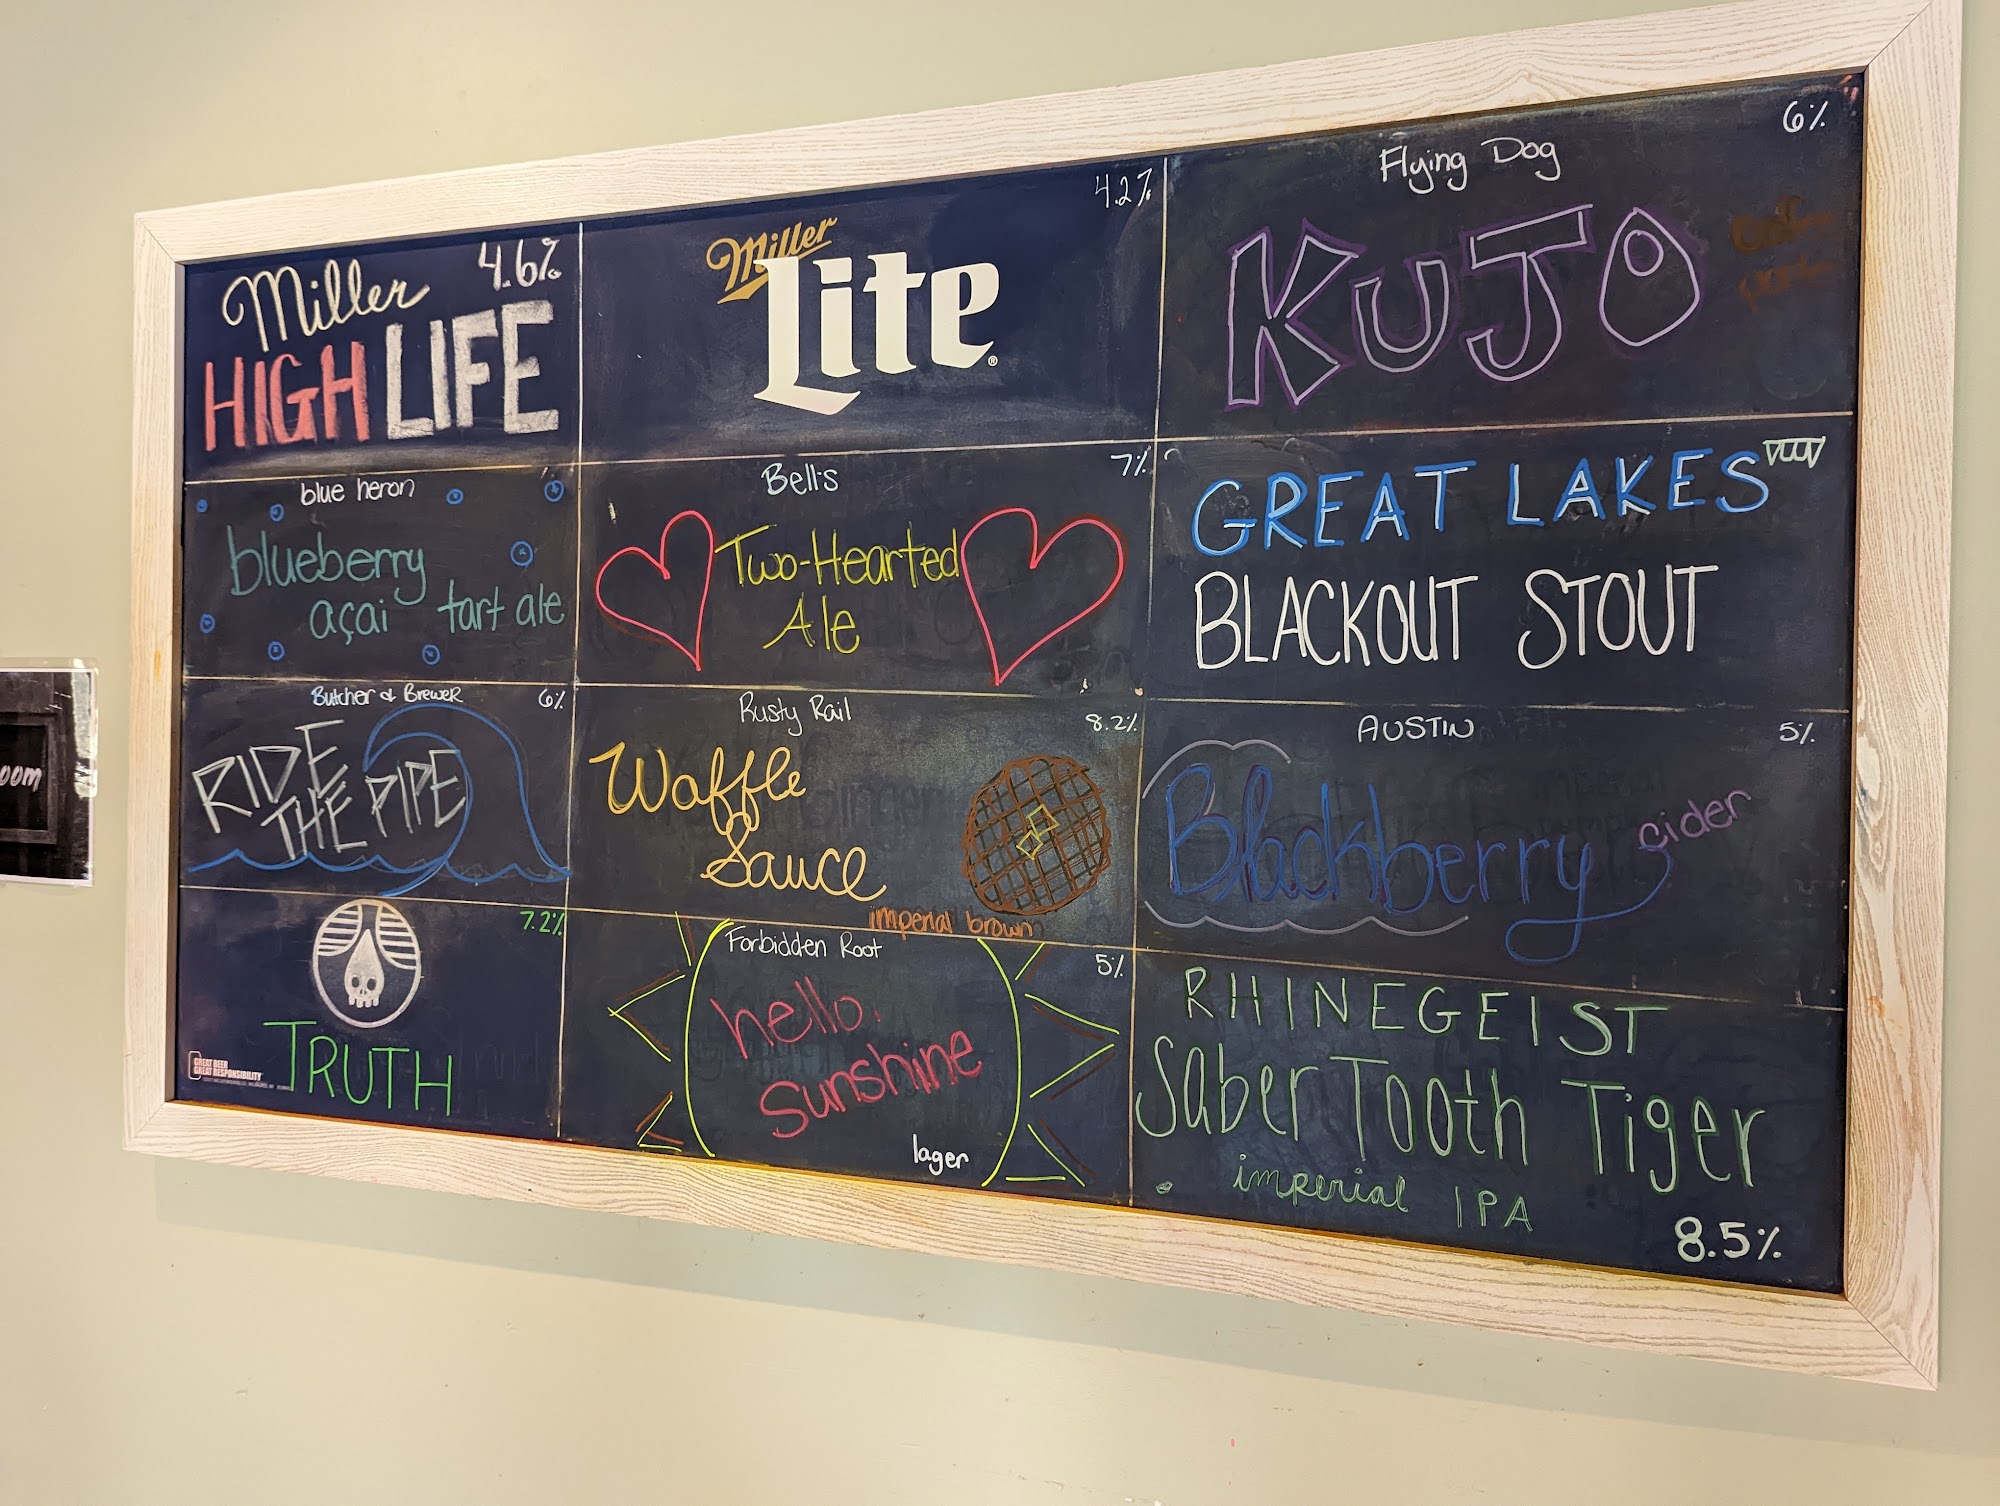 Miller
4.6%
HIGH LIFE
Miller
Lite
®
4.2%
Flying Dog
6%
KUJO
blue heron
blueberry
açai tart ale
Bell's
7%
Two-Hearted
Ale
GREAT LAKES
BLACKOUT STOUT
Butcher & Brewer
6%
RIDE
THE PIPE
Rusty Rail
8.2%
Waffle
Sauce
imperial brown
AUSTIN
5%
Blackberry cider
7.2%
TRUTH
GREAT BEER
GREAT RESPONSIBILITY
Forbidden Root
5%
hello,
sunshine
lager
RHINEGEIST
Saber Tooth Tiger
imperial IPA
8.5%
oom